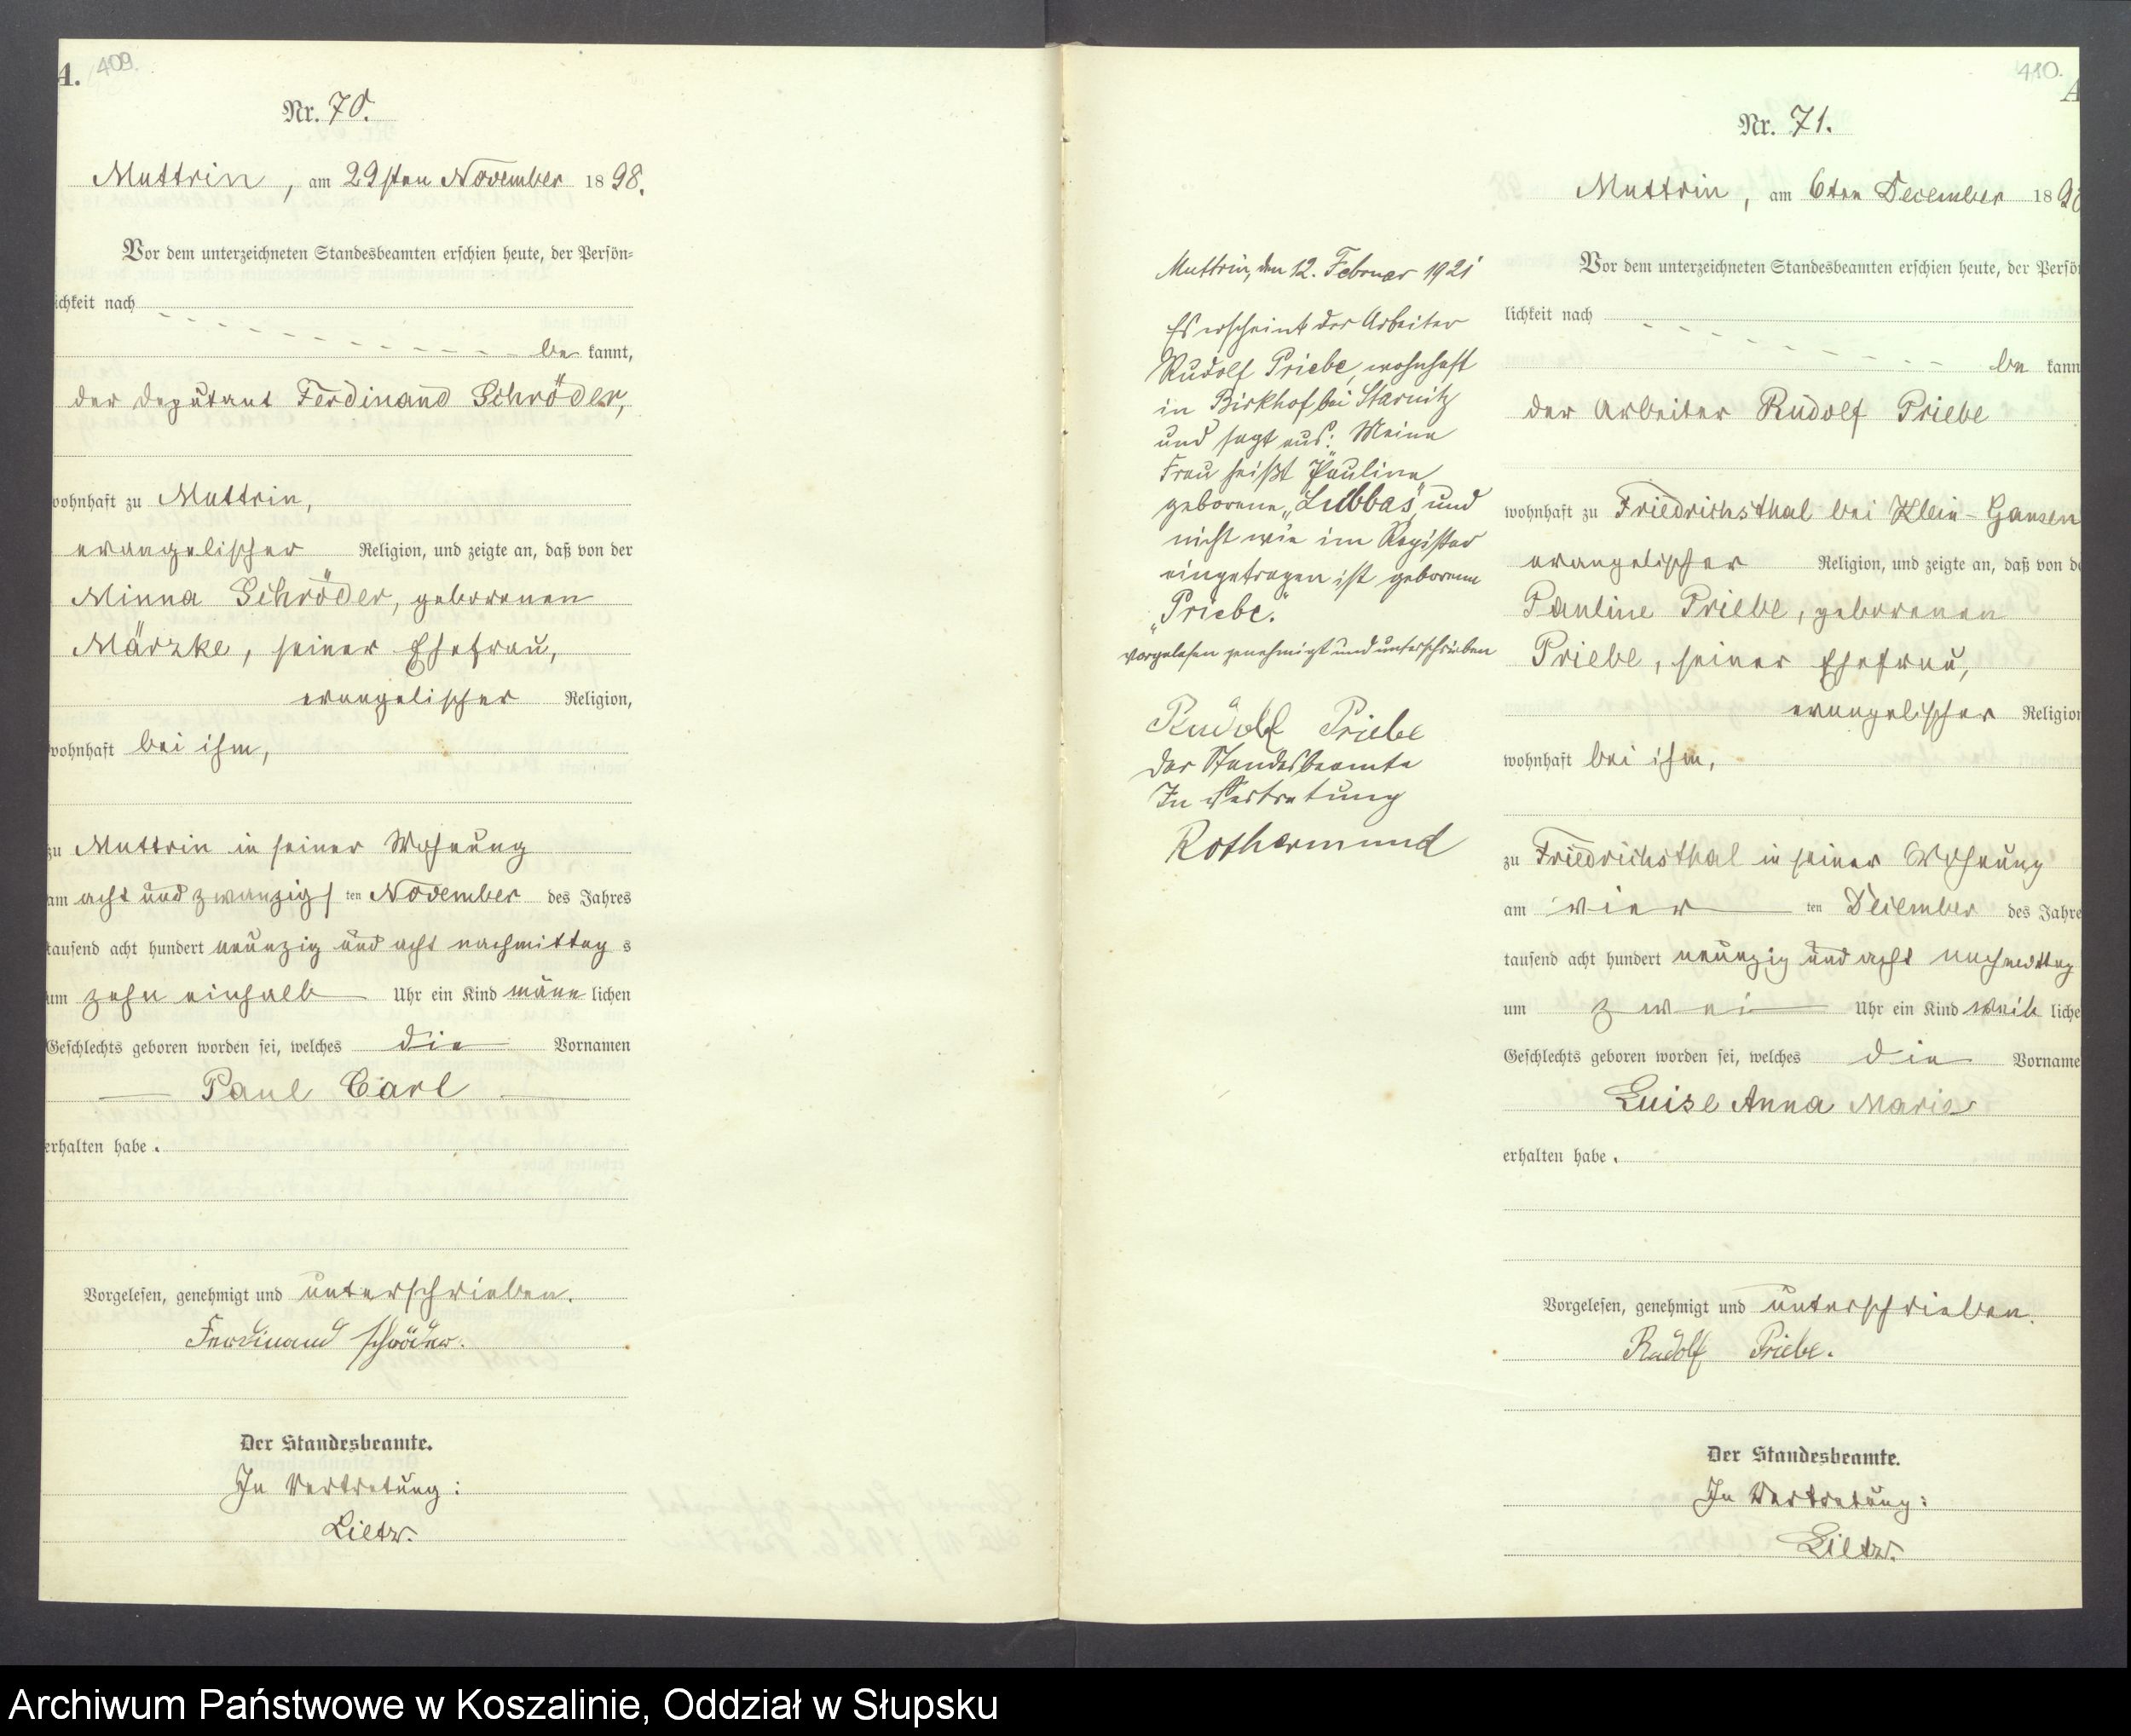 A. 409.
Nr. 70.
Muttrin, am 29sten November 1898.
Vor dem unterzeichneten Standesbeamten erschien heute, der Persön-
ichkeit nach
be kannt,
der Deputant Ferdinand Schröder,
wohnhaft zu Muttrin,
evangelischer Religion, und zeigte an, daß von der
Minna Schröder, geborenen
Märzke, seiner Ehefrau,
evangelischer Religion,
wohnhaft bei ihm,
zu Muttrin in seiner Wohnung
am acht und zwanzigsten November des Jahres
tausend acht hundert neunzig und acht nachmittag s
um zehn einhalb Uhr ein Kind männ lichen
Geschlechts geboren worden sei, welches die Vornamen
Paul Carl
erhalten habe.
Vorgelesen, genehmigt und unterschrieben.
Ferdinand Schröder.
Der Standesbeamte.
In Vertretung:
Lietz.
Muttrin, den 12. Februar 1921
Es erscheint der Arbeiter
Rudolf Priebe, wohnhaft
in Birkhof bei Starnitz
und sagt aus: Meine
Frau heißt Pauline
geborene „Lubbas" und
nicht wie im Register
eingetragen ist geborene
„Priebe."
vorgelesen genehmigt und unterschrieben
Rudolf Priebe
Der Standesbeamte
In Vertretung
Rothermund
410. A
Nr. 71.
Muttrin, am 6ten December 1898
Vor dem unterzeichneten Standesbeamten erschien heute, der Persön
lichkeit nach
be kann
der Arbeiter Rudolf Priebe
wohnhaft zu Friedrichsthal bei Klein-Gansen
evangelischer Religion, und zeigte an, daß von de
Pauline Priebe, geborenen
Priebe, seiner Ehefrau,
evangelischer Religion
wohnhaft bei ihm,
zu Friedrichsthal in seiner Wohnung
am vier ten December des Jahre
tausend acht hundert neunzig und acht nachmittag
um zwei Uhr ein Kind weib liche
Geschlechts geboren worden sei, welches die Vorname
Luise Anna Marie
erhalten habe.
Vorgelesen, genehmigt und unterschrieben.
Rudolf Priebe.
Der Standesbeamte.
In Vertretung:
Lietz.
Archiwum Państwowe w Koszalinie, Oddział w Słupsku